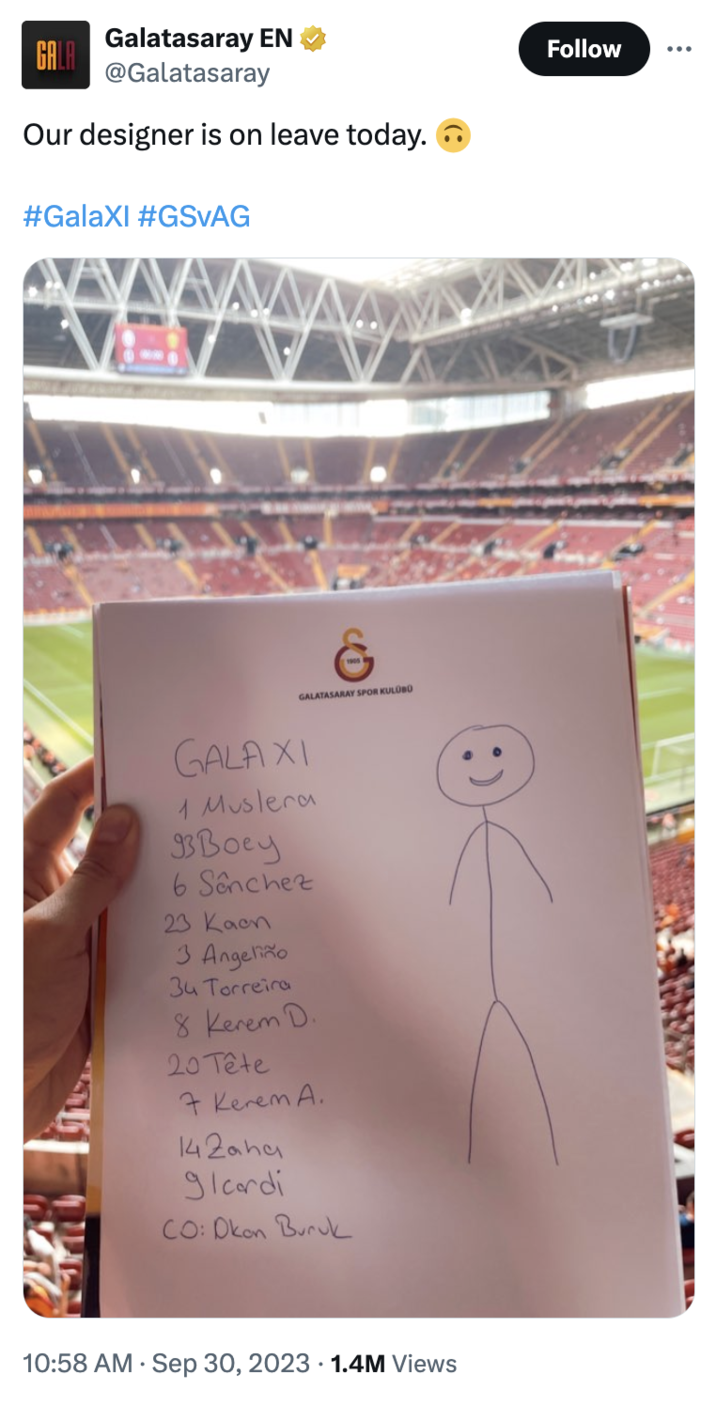 GALA
Galatasaray EN
@Galatasaray
Follow
Our designer is on leave today. 🙃
#GalaXI #GSvAG
0 0
1905
GALATASARAY SPOR KULÜBÜ
GALA XI
1 Muslera
93 Boey
6 Sânchez
23 Kaan
3 Angeliño
34 Torreira
8 Kerem D.
20 Tête
7 Kerem A.
14 Zaha
9 Icardi
CO: Okan Buruk
10:58 AM · Sep 30, 2023 · 1.4M Views